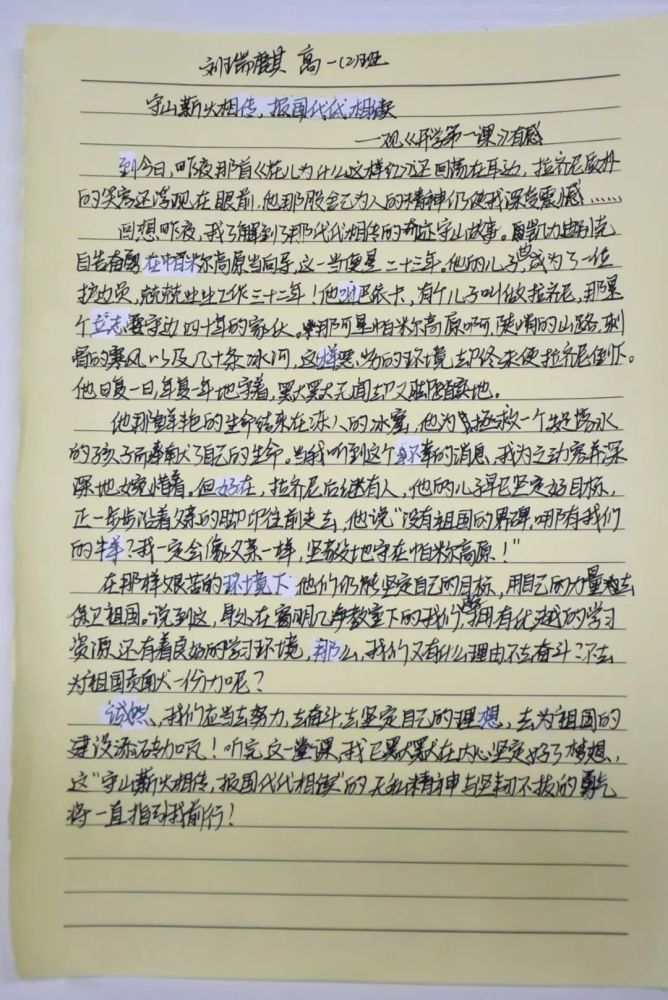 刘瑞麒 高一(2)班
守山薪火相传,报国代代相续
——观《开学第一课》有感
到今日,昨夜那首《花儿为什么这样红》还回荡在耳边,拉齐尼质朴
的笑容还浮现在眼前,他那股舍己为人的精神仍使我深受震憾……
回想昨夜,我了解到了那代代相传的 守山故事。凯力迪别克
自告奋勇在帕米尔高原当向导,这一当便是二十三年。他的儿子也成为了一位
护边员,兢兢业业工作三十二年!他叫巴依卡,有个儿子叫做拉齐尼,那是
个立志要守边四十年的家伙。那可是帕米尔高原啊,陡峭的山路,刺
骨的寒风以及几十条冰河,这样恶劣的环境却终未使拉齐尼倒下。
他日复一日,年复一年地守着,默默无闻却又 地。
他那鲜艳的生命结束在冻人的冰窟,他为拯救一个 落水
的孩子而奉献了自己的生命。当我听到这个不幸的消息,我为之动容并深
深地惋惜着。但好在,拉齐尼后继有人,他的儿子早已坚定好目标,
正一步步沿着父亲的脚印往前走去,他说“没有祖国的界碑,哪有我们
的牛羊?我一定会像父亲一样,坚毅地守在帕米尔高原!”
在那样艰苦的环境下他们仍能坚定自己的目标,用自己的力量去
保卫祖国。说到这,身处在窗明几净教室下的我们,拥有优越的学习
资源,还有着良好的学习环境,那么,我们又有什么理由不去奋斗?不去
为祖国贡献一份力呢?
诚然,我们应当去努力,去奋斗,去坚定自己的理想,去为祖国的
建设添砖加瓦!听完这一堂课,我已默默在内心坚定好了梦想,
这“守山薪火相传,报国代代相续”的无私精神与坚韧不拔的勇气
将一直指引我前行!